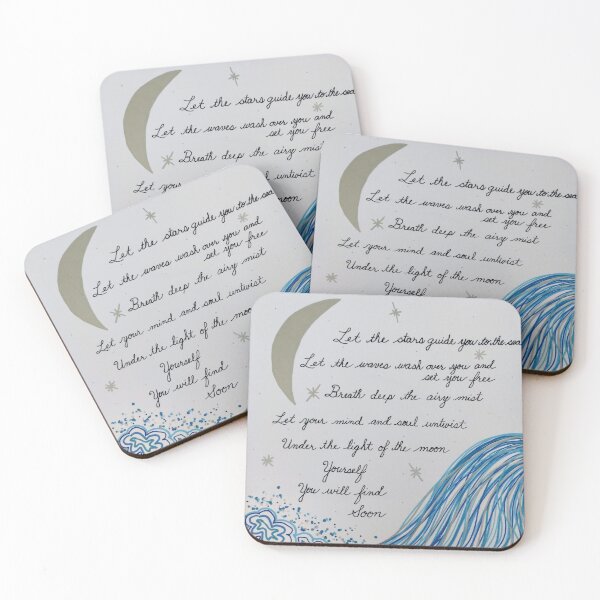 Let the stars guide you to the sea
Let the waves wash over you and
set you free
Breath deep the airy mist
Let your
moon
Let the stars guide you to the sea
Let the waves wash over you and
set you free
Breath deep the airy mist
Let your mind and soul untwist
Under the light of the moon
Yourself
Let the stars guide you to the sea
Let the waves wash over you and
set you free
Breath deep the airy mist
Let your mind and soul untwist
Under the light of the moon
Yourself
You will find
Soon
Let the stars guide you to the sea
Let the waves wash over you and
set you free
Breath deep the airy mist
Let your mind and soul untwist
Under the light of the moon
Yourself
You will find
Soon